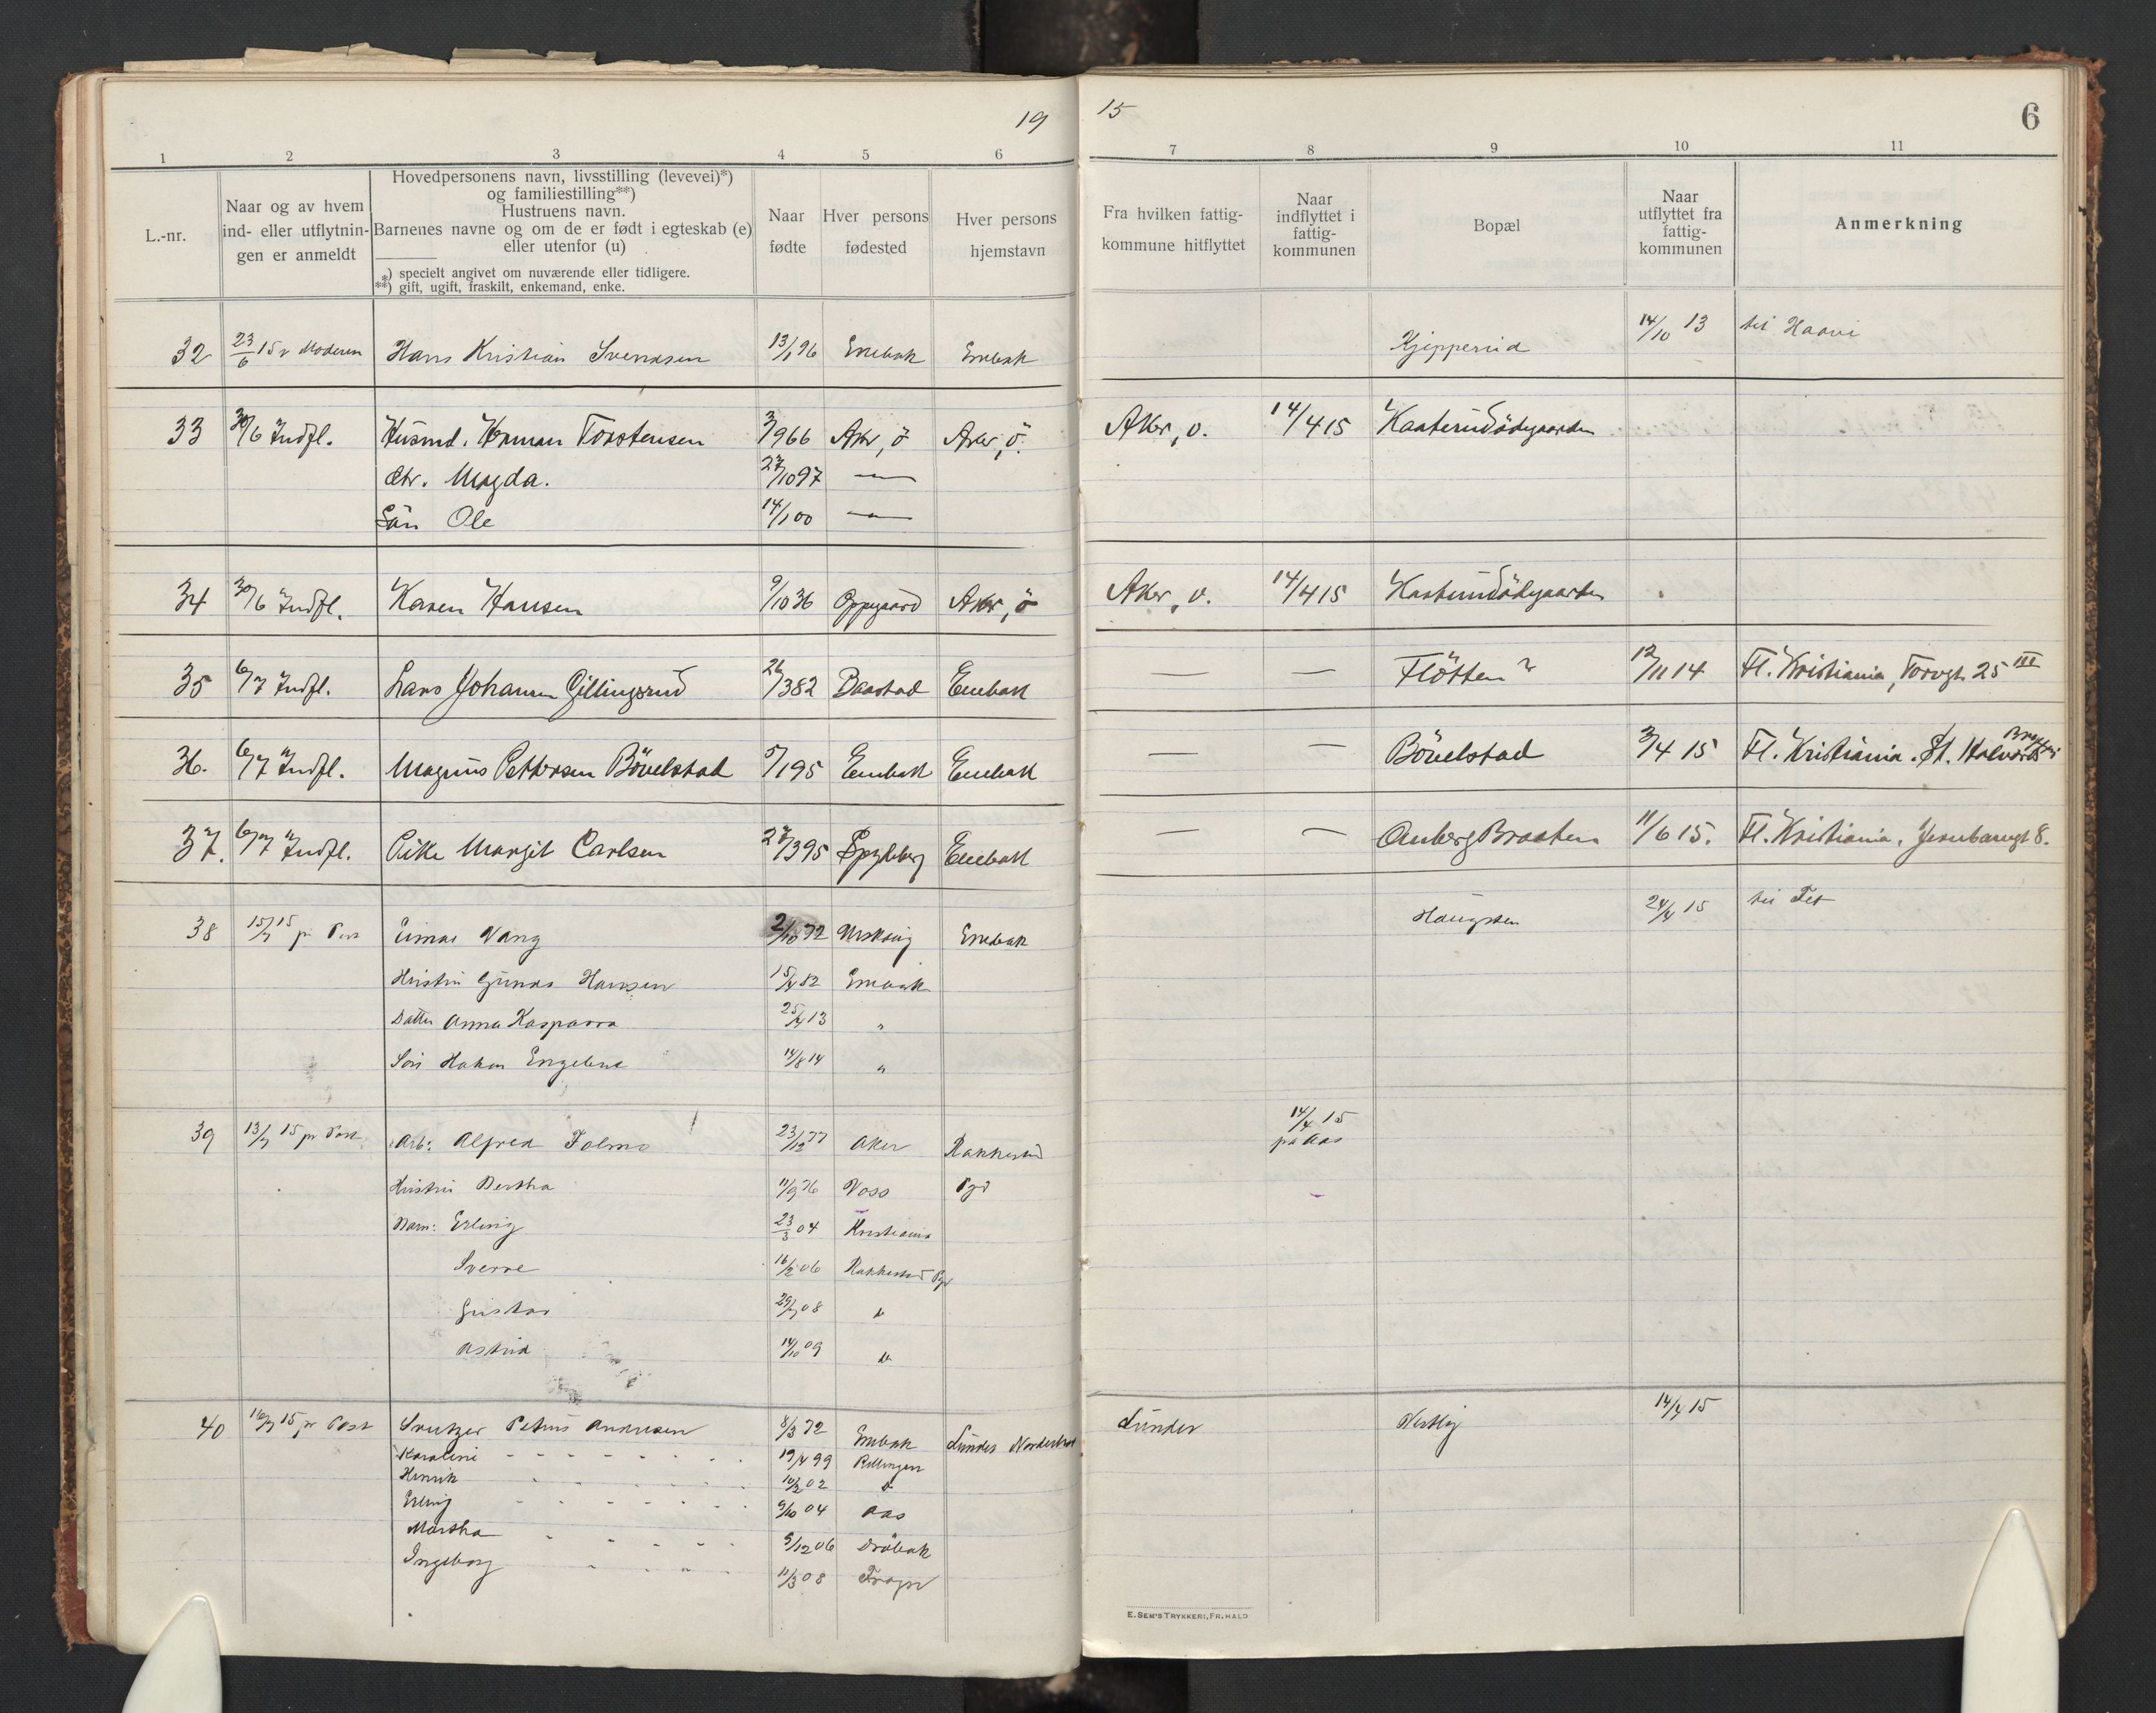 19 15
6
1 2 3 4 5 6 7 8 9 10 11
L.-nr.
Naar og av hvem
ind- eller utflytnin-
gen er anmeldt
Hovedpersonens navn, livsstilling (levevei)*)
og familiestilling**)
Hustruens navn.
Barnenes navne og om de er født i egteskab (e)
eller utenfor (u)
*) specielt angivet om nuværende eller tidligere.
**) gift, ugift, fraskilt, enkemand, enke.
Naar
fødte
Hver persons
fødested
Hver persons
hjemstavn
Fra hvilken fattig-
kommune hitflyttet
Naar
indflyttet i
fattig-
kommunen
Bopæl
Naar
utflyttet fra
fattig-
kommunen
Anmerkning
32 23/6 15 v Moderen Hans Kristian Svendsen 13/1 96 Enebak Enebak Kjepperud 14/10 13 til Haavi
33 30/6 Indfl. Husmd. Herman Torstensen 3/9 66 Aker, ö Aker, ö. Aker, v. 14/4 15 Kaaterudödegaarden
dtr. Magda. 27/10 97 —"—
Sön Ole 14/1 00 —"—
34 30/6 Indfl. Karen Hansen 9/10 36 Oppegaard Aker, ö Aker, v. 14/4 15
35 6/7 Indfl. Lars Johansen Gillingsrud 26/3 82 Baastad Enebak — — Flötten ? 12/11 14 Fl. Kristiania, Torvgt. 25 III
36. 6/7 Indfl. Magnus Pettersen Bövelstad 5/1 95 Enebak Enebak — — Bövelstad 3/4 15 Fl. Kristiania. St. Halvards
37. 6/7 Indfl. Pike Margit Carlsen 27/3 95 Spydeberg Enebak — — Braaten 11/6 15. Fl. Kristiania, 8.
38 15/7 15 pr Post Einar Vang 2/10 72 Urskoug Enebak Haugsten 24/4 15 til Fet
Hustru Gunda Hansen 15/4 82 Enebak
Datter Anna Kasparra 25/4 13 "
Sön Hakon Engelius 14/8 14 "
39 13/7 15 pr Post Arb: Alfred Folmo 23/12 77 Aker Rakkestad 14/4 15
pr Aas
Hustru Bertha 11/9 76 Voss Pgd
Barn: Erling 23/3 04 Kristiania
Sverre 16/2 06 Rakkestad Pgd
Gustav 29/7 08 do
Astrid 14/10 09 do
40 16/7 15 pr Post Sveitzer Petrus Andresen 8/3 72 Enebak Lunder Norderhov Lunder Vestby 14/4 15
Karoline - - - - - - 19/4 99
Henrik 10/2 02 do
Erling - - - - - - 9/10 04 Aas
Martha - - - - - 9/12 06 Dröbak
Ingeborg 11/3 08 Frogn
E. SEM'S TRYKKERI, FR.HALD